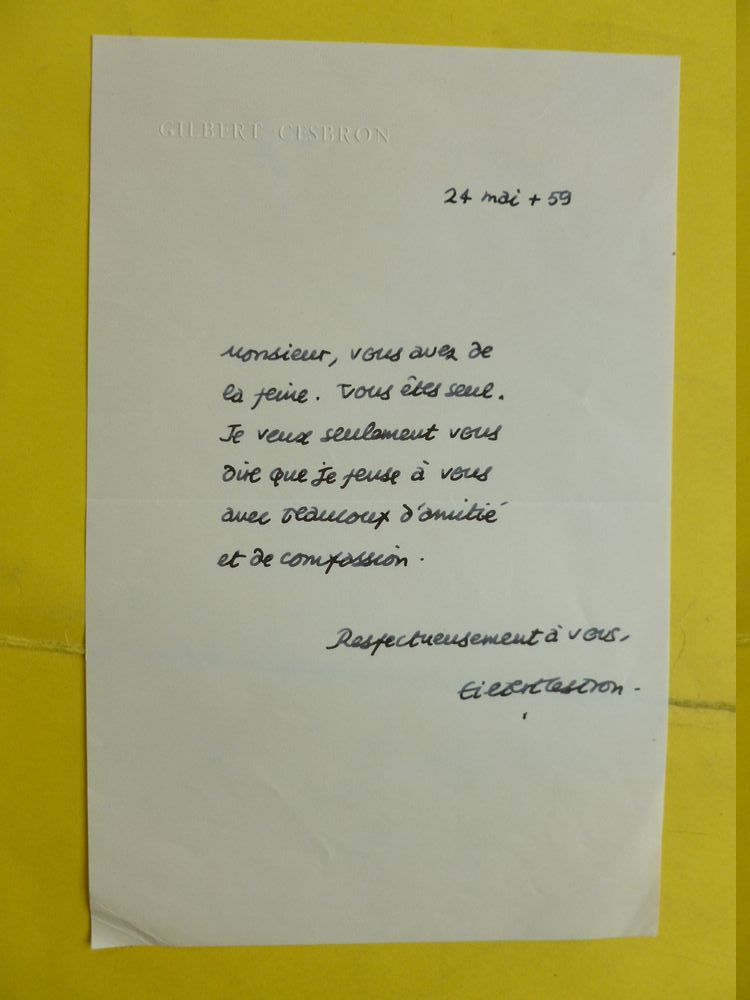 GILBERT CESBRON
24 mai + 59
Monsieur, vous avez de
la peine. Vous êtes seul.
Je veux seulement vous
dire que je pense à vous
avec beaucoup d'amitié
et de compassion.
Respectueusement à vous,
Gilbert Cesbron.